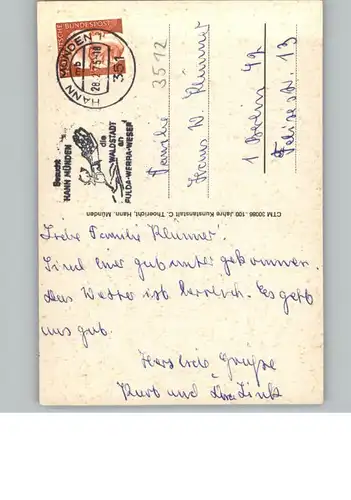 DEUTSCHE
BUNDESPOST
HANN MÜNDEN 1
mb
28.
75-18
351
3512
Besucht
HANN MÜNDEN
die
WALDSTADT
an
FULDA-WERRA-WESER
Familie
Hans W. Klümner
1 Berlin 49
CTM 30086 - 100 Jahre Kunstanstalt C. Thoericht, Hann. Münden
Liebe Familie Klümner.
Sind hier gut unter gekommen.
Das Wetter ist herrlich. Es geht
uns gut.
Herzliche Grüße
Kurt und Link